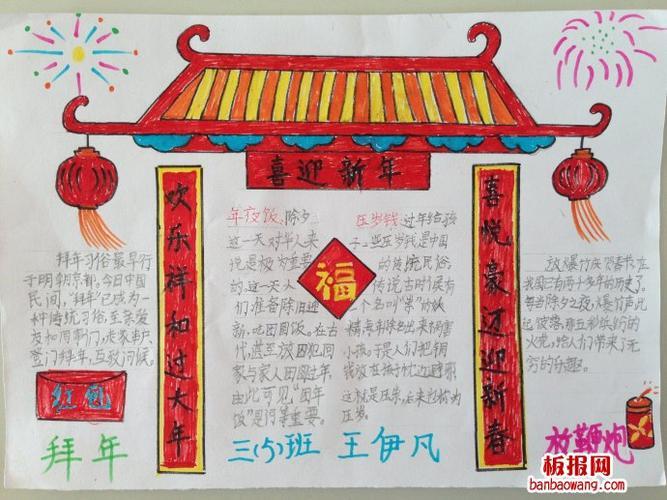 喜迎新年
欢乐祥和过大年
喜悦豪迈迎新春
福
拜年习俗最早行
于明朝京都。今日中国
民间,“拜年”已成为一
种传统习俗至亲爱
登门拜年,互致问候。
红包
拜年
年夜饭:除夕
这一天对华人来
说是极为重要
的。这一天人
们准备除旧迎
新,吃团圆饭。在古
代,甚至放囚犯回
家与家人团圆过年,
由此可见“团年
饭”是何等重要。
压岁钱:过年给孩
子一些压岁钱是中国
的传统民俗。
传说古时候有
一个名叫“祟”的妖
精,专在除夕出来祸害
小孩。于是人们把铜
钱放在孩子枕边避邪
这就是压祟,后来被称为
压岁。
放爆竹庆贺春节在
我国已有两千多年的历史了。
每当除夕之夜,爆竹声此
起彼落,那五彩缤纷的
火花,给人们带来了无
穷的乐趣。
放鞭炮
三(5)班 王伊凡
板报网
banbaowang.com